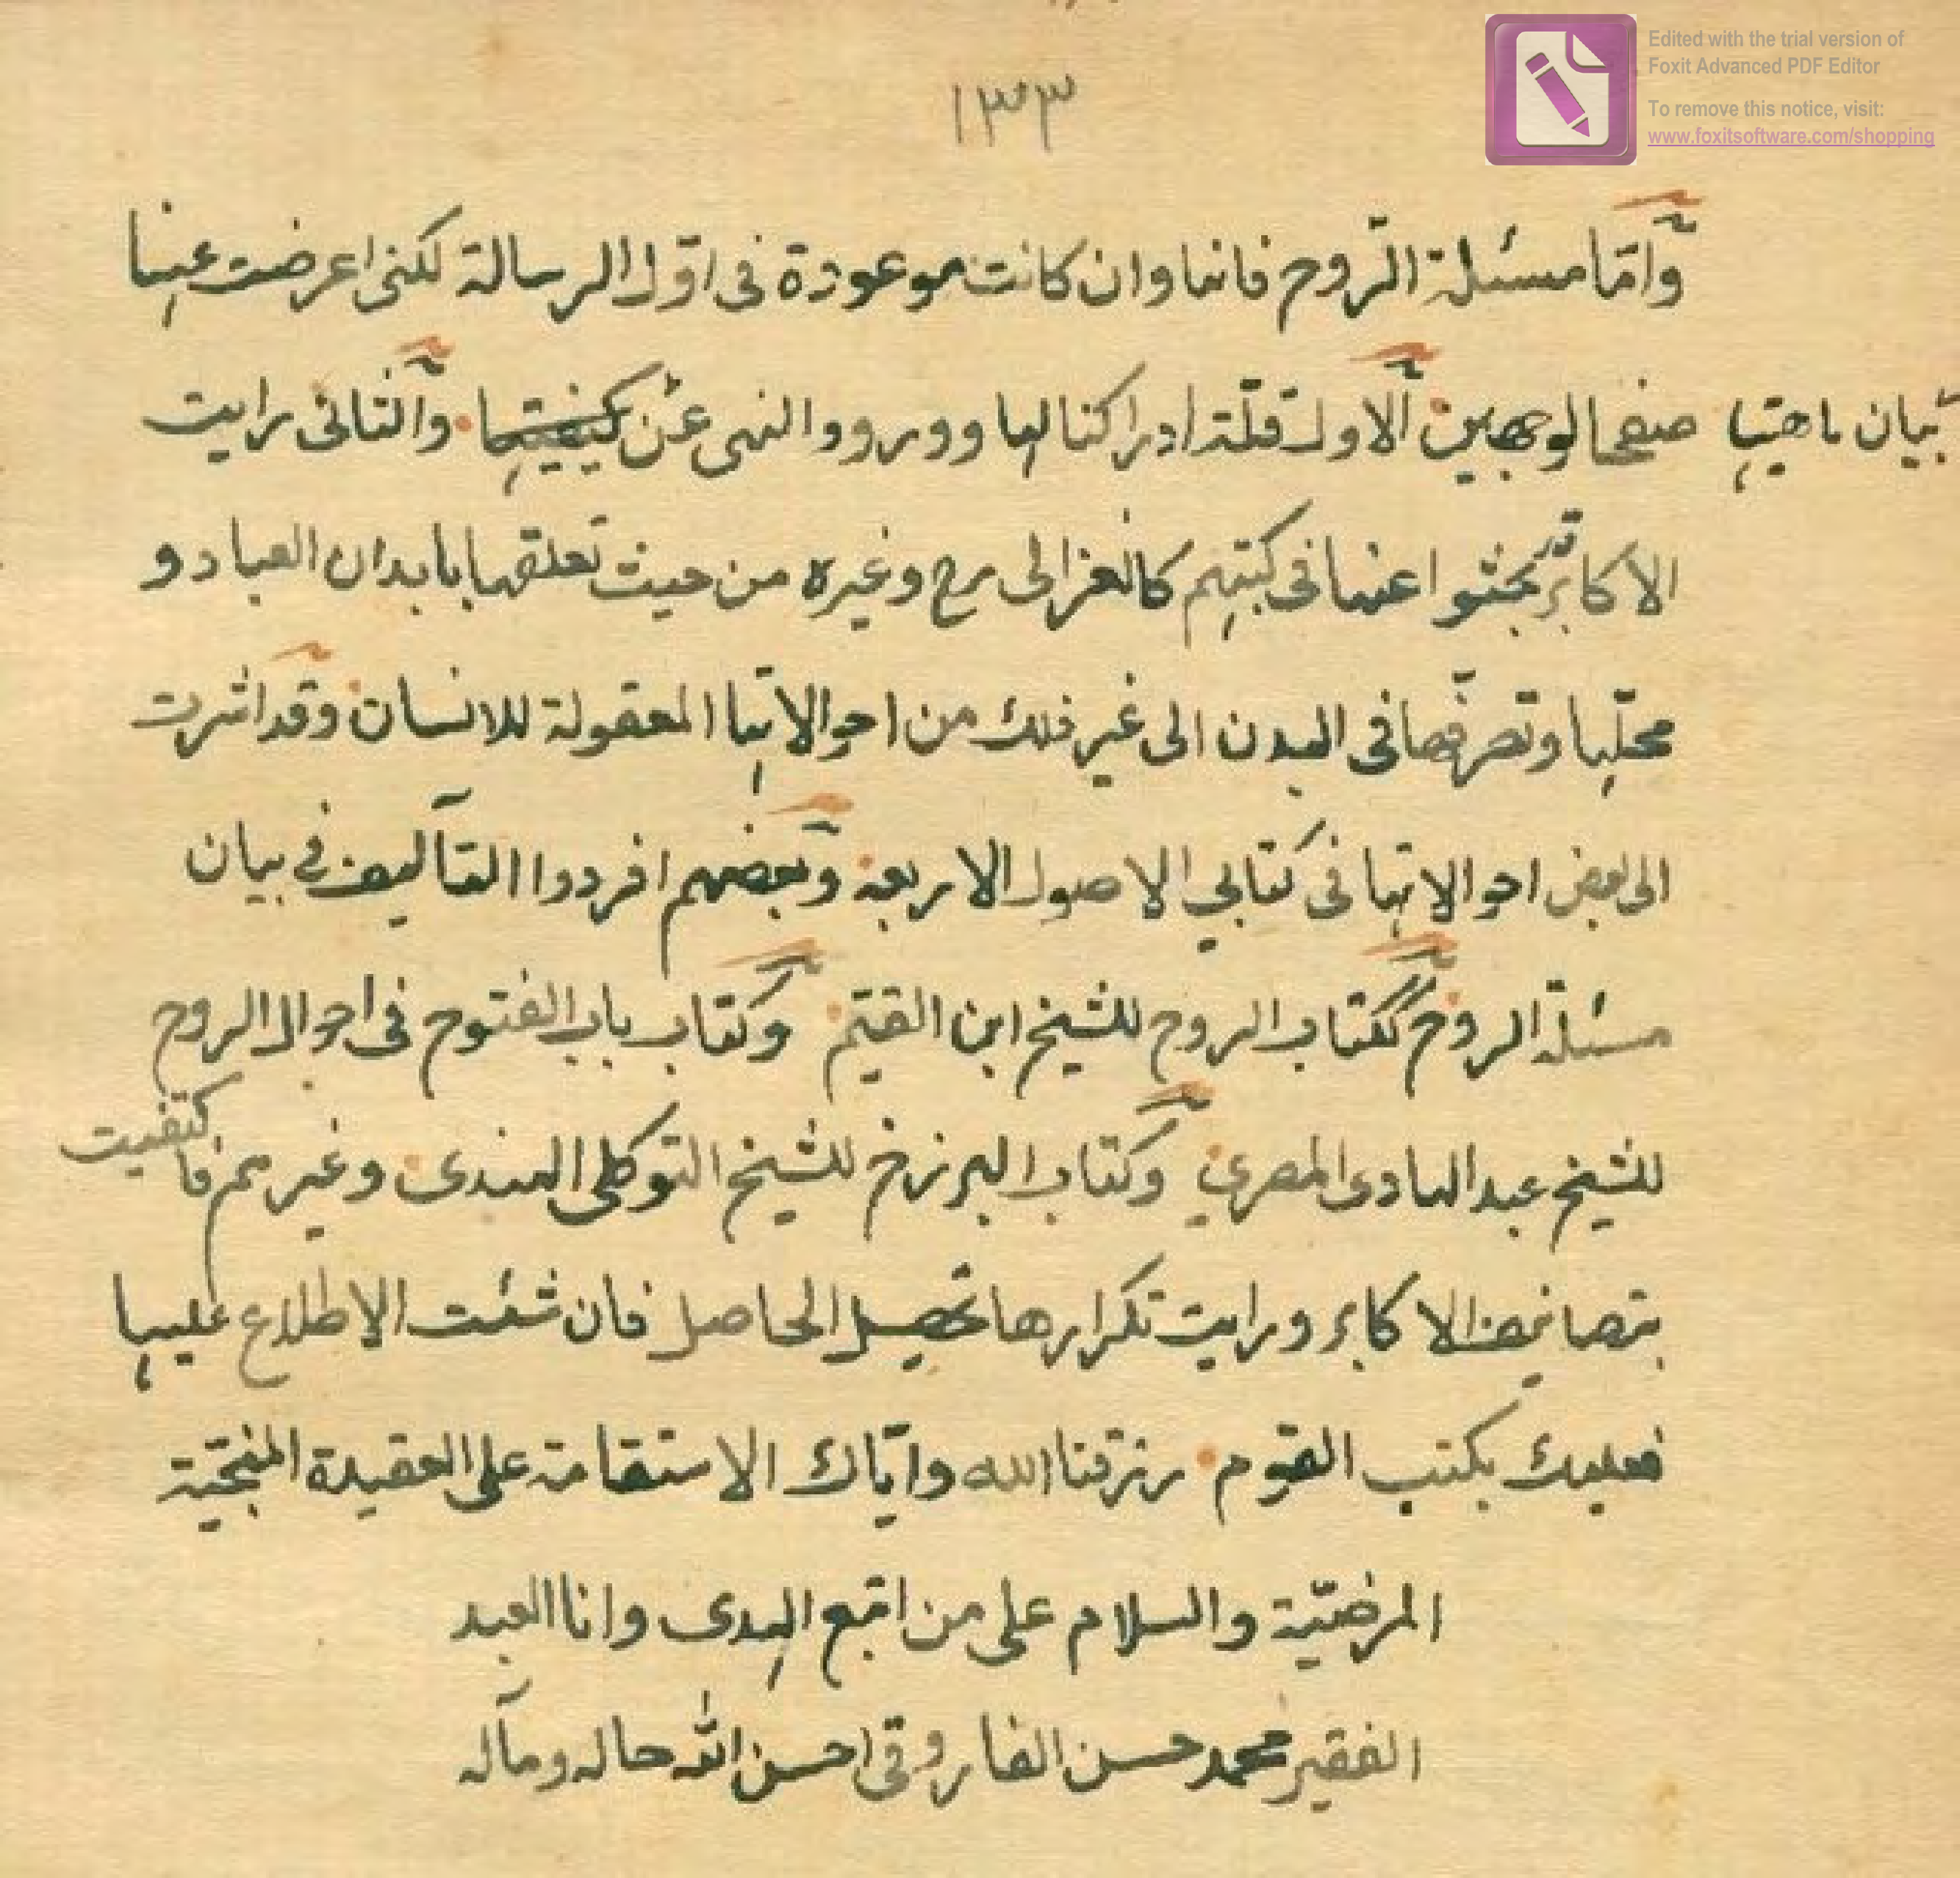 Edited with the trial version of
Foxit Advanced PDF Editor
To remove this notice, visit:
www.foxitsoftware.com/shopping
١٣٣
وامّا مسئلة الرّوح فانها وان كانت موعودة فى اوّل الرسالة لكنى اعرضت عنها
بيان ماهيتها صفحا لوجهين الاول قلّة ادراكنا لها وورود النهى عن كيفيتها. والثانى رايت
الاكابر قد بحثوا عنها فى كتبهم كالغزالى رح وغيره من حيث تعلقها بابدان العباد و
محلّها وتصرفها فى البدن الى غير ذلك من احوالاتها المعقولة للانسان وقد اشرت
الى بعض احوالاتها فى كتابي الاصول الاربعة وبعضهم افردوا التآليف في بيان
مسئلة الروح ككتاب الروح للشيخ ابن القيّم وكتاب باب الفتوح فى احوال الروح
للشيخ عبد الهادى المصرى وكتاب البرزخ للشيخ التوكلى الهندى وغيرهم فاكتفيت
بتصانيف الاكابر ورايت تكرارها تحصيل الحاصل فان شئت الاطلاع عليها
فعليك بكتب القوم. رزقنا الله وايّاك الاستقامة على العقيدة المنجيّة
المرضيّة والسلام على من اتبع الهدى وانا العبد
الفقير محمد حسن الفاروقى احسن الله حاله ومآله